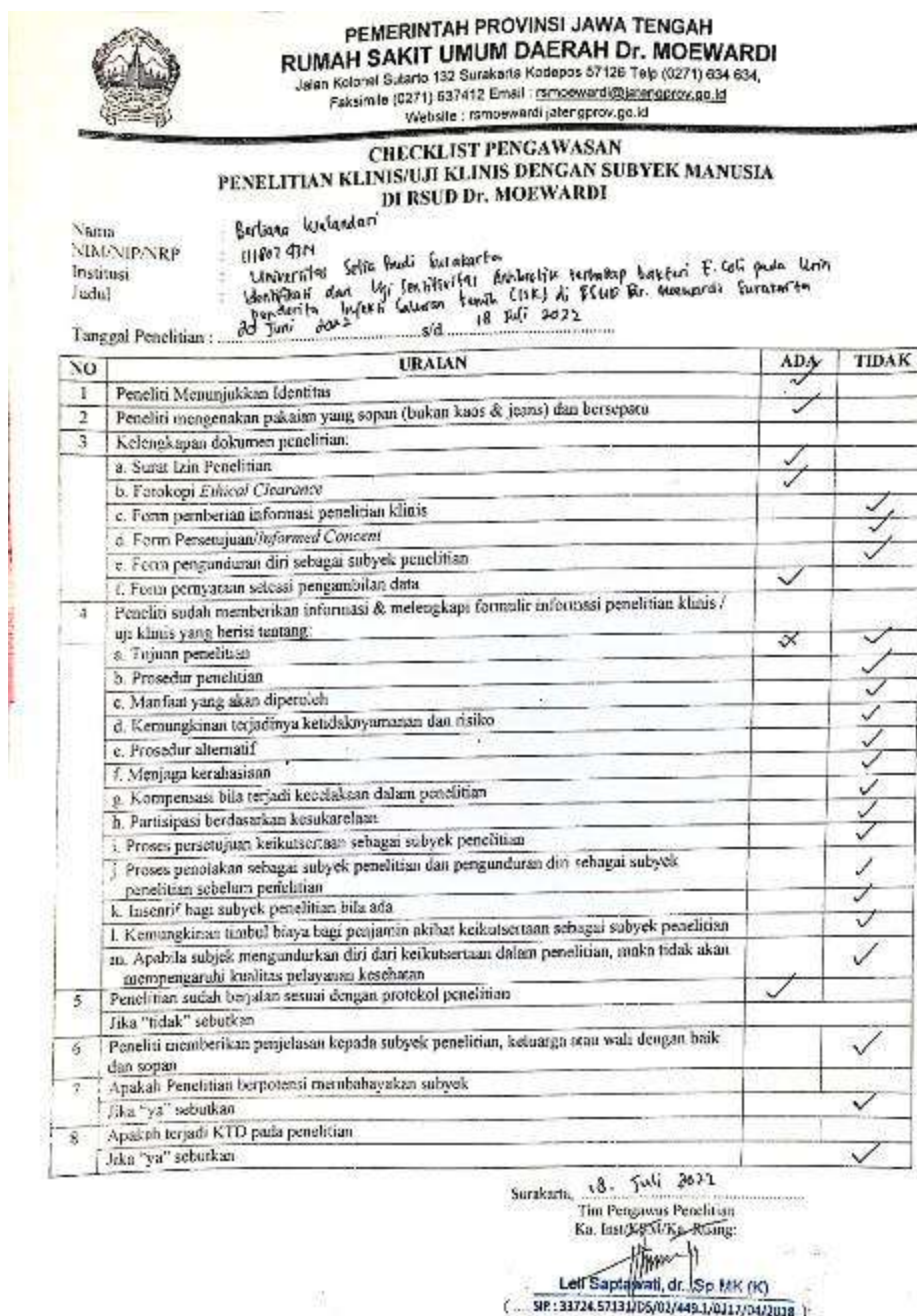 PEMERINTAH PROVINSI JAWA TENGAH
RUMAH SAKIT UMUM DAERAH Dr. MOEWARDI
Jalan Kolonel Sutarto 132 Surakarta Kodepos 57126 Telp (0271) 634 634,
Faksimile (0271) 637412 Email : rsmoewardi@jatengprov.go.id
Website : rsmoewardi.jatengprov.go.id
CHECKLIST PENGAWASAN
PENELITIAN KLINIS/UJI KLINIS DENGAN SUBYEK MANUSIA
DI RSUD Dr. MOEWARDI
Nama :
NIM/NIP/NRP :
Institusi : Universitas Setia Budi Surakarta
Judul : Identifikasi dan Uji Sensitivitas Antibiotik terhadap bakteri E. Coli pada Urin
penderita Infeksi Saluran kemih (ISK) di RSUD Dr. Moewardi Surakarta
Tanggal Penelitian : 20 Juni 2022 s/d 18 Juli 2022
NO URAIAN ADA TIDAK
1 Peneliti Menunjukkan Identitas ✓
2 Peneliti mengenakan pakaian yang sopan (bukan kaos & jeans) dan bersepatu ✓
3 Kelengkapan dokumen penelitian:
a. Surat Izin Penelitian ✓
b. Fotokopi Ethical Clearance ✓
c. Form pemberian informasi penelitian klinis ✓
d. Form Persetujuan/Informed Concent ✓
e. Form pengunduran diri sebagai subyek penelitian ✓
f. Form pernyataan selesai pengambilan data ✓
4 Peneliti sudah memberikan informasi & melengkapi formulir informasi penelitian klinis /
uji klinis yang berisi tentang:
a. Tujuan penelitian ✓
b. Prosedur penelitian ✓
c. Manfaat yang akan diperoleh ✓
d. Kemungkinan terjadinya ketidaknyamanan dan risiko ✓
e. Prosedur alternatif ✓
f. Menjaga kerahasiaan ✓
g. Kompensasi bila terjadi kecelakaan dalam penelitian ✓
h. Partisipasi berdasarkan kesukarelaan ✓
i. Proses persetujuan keikutsertaan sebagai subyek penelitian ✓
j. Proses penolakan sebagai subyek penelitian dan pengunduran diri sebagai subyek
penelitian sebelum penelitian ✓
k. Insentif bagi subyek penelitian bila ada ✓
l. Kemungkinan timbul biaya bagi penjamin akibat keikutsertaan sebagai subyek penelitian ✓
m. Apabila subjek mengundurkan diri dari keikutsertaan dalam penelitian, maka tidak akan
mempengaruhi kualitas pelayanan kesehatan ✓
5 Penelitian sudah berjalan sesuai dengan protokol penelitian ✓
Jika "tidak" sebutkan
6 Peneliti memberikan penjelasan kepada subyek penelitian, keluarga atau wali dengan baik
dan sopan ✓
7 Apakah Penelitian berpotensi membahayakan subyek
Jika "ya" sebutkan ✓
8 Apakah terjadi KTD pada penelitian
Jika "ya" sebutkan ✓
Surakarta, 18. Juli 2022
Tim Pengawas Penelitian
Ka. Inst/KSM/Ka. Ruang:
Leli Saptawati, dr., Sp.MK (K)
( SIP. : 33724.57131/DS/02/449.1/0117/04/2018 )